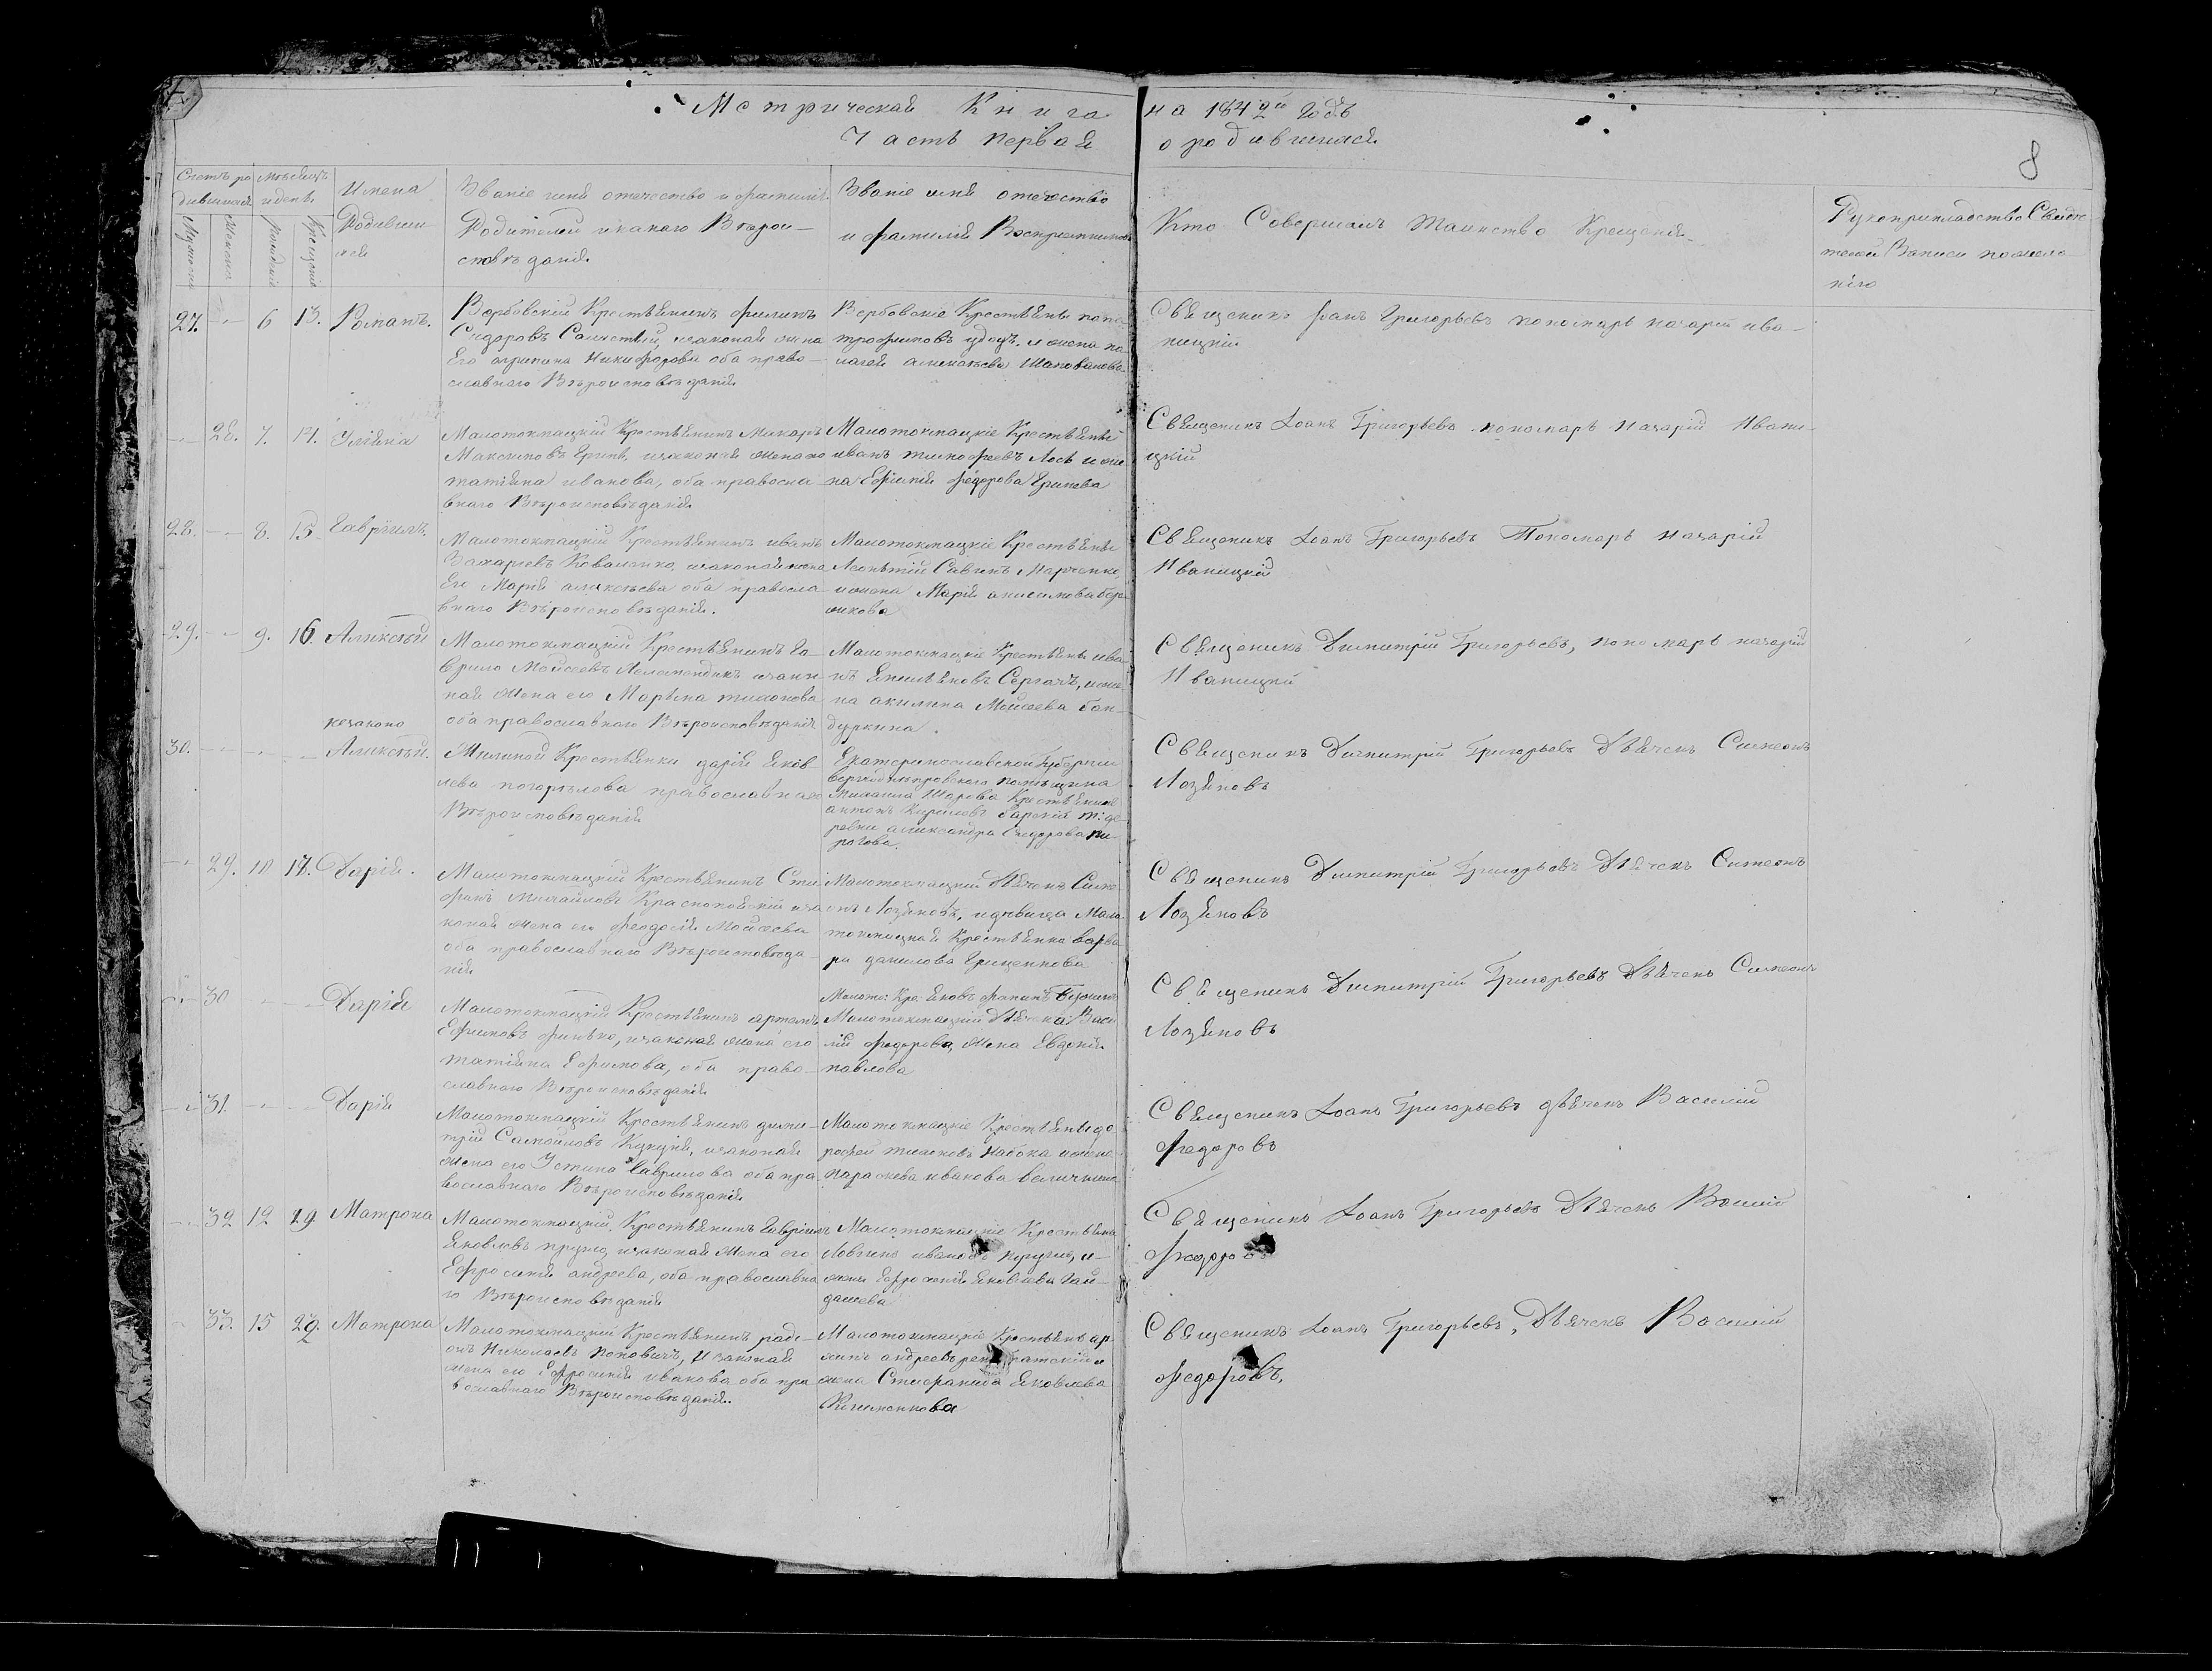 Метрическая Книга на 1842й годъ
Часть Первая о родившихся
8
Счетъ ро Мѣсяцъ Имена Званіе имя отечество и фамилія Званіе имя отечество Кто Совершалъ Таинство Крещенія Рукоприкладство Свидѣ
дившихся и день Родивши Родителей и какаго Вѣрои- и фамилія Воспріемниковъ телей Записи по жела
хся сповѣданія нію
Мужеска Женска Рожденія Крещенія
27. 6 13. Романъ.
Вербовскій Крестьянинъ филипъ
Сидоровъ законая жена
Его агрипина Никифорова оба право-
славнаго Вѣроисповѣданія
Вербовскіе Крестьяне
трофимовъ и жена па-
лагея алексѣева Шаповалова
Священикъ Іоанъ Григорьевъ пономарь назарій ива-
ницкій
28. 7. 14. Уліяна
Малотокмацкій Крестьянинъ Макаръ
Максимовъ законая жена его
татіяна иванова, оба правосла
внаго Вѣроисповѣданія
Малотокмацкіе Крестьяне
иванъ тимофеевъ Лось и же
на Ефимія федорова
Священикъ Іоанъ Григорьевъ пономарь Назарій Ивани-
цкій
28. 8. 15 Гавріилъ.
Малотокмацкій Крестьянинъ иванъ
Захарьевъ Коваленко, законая жена
Его Марія алексѣева оба правосла
внаго Вѣроисповѣданія.
Малотокмацкіе Крестьяне
Леонтій Савинъ Марченко,
и жена Марія анисимова
Священикъ Іоанъ Григорьевъ Пономарь Назарій
Иваницкій
29. 9. 16. Аликсѣй
Малотокмацкій Крестьянинъ Га-
врило Мойсеевъ закон
ная жена его Марѣна тихонова
оба православнаго Вѣроисповѣданія
Малотокмацкіе Крестьяне ива-
нъ Сергачъ, и же
на акилина Мойсеева бан-
дуркина.
Священикъ Димитрій Григорьевъ, пономарь назарій
Иваницкій
незаконо
30. Аликсѣй.
Крестьянки дарія яков
лева погорѣлова православнаго
Вѣроисповѣданія
Екатеринославской Губерніи
верхнеднѣпровского помѣщика
Михаила Шарова Крестьянинъ
антонъ Кириловъ
ревни александра Сидорова пи-
рогова.
Священикъ Димитрій Григорьевъ Дѣячекъ Симеонъ
Лозяновъ
29. 10 17. Дарія.
Малотокмацкій Крестьянинъ Сте
фанъ Михайловъ Краснокойскій
законая жена его феодосія Мойсеева
оба православнаго Вѣроисповѣда-
нія
Малотокмацкій Дѣячекъ Симе-
онъ Лозяновъ, и дѣвица Мало
токмацкая Крестьянка варва-
ра данилова Гриценкова
Священикъ Димитрій Григорьевъ Дѣячекъ Симеонъ
Лозяновъ
30 Дарія
Малотокмацкій Крестьянинъ артемъ
Ефимовъ законая жена его
татіяна Ефимова, оба право-
славнаго Вѣроисповѣданія
Малото: Кре: яковъ
Малотокмацкій Дѣячка Васи
лія федорова, жена Евдокія
павлова
Священикъ Димитрій Григорьевъ Дѣячекъ Симеонъ
Лозяновъ
31. Дарія
Малотокмацкій Крестьянинъ дими-
трій Самойловъ законая
жена его Устина Гаврилова оба пра
вославнаго Вѣроисповѣданія
Малотокмацкіе Крестьяне до
рофей тихоновъ Набока и жена
параскева иванова величкина
Священикъ Іоанъ Григорьевъ дѣячекъ Василій
федоровъ
32 12 19 Матрона
Малотокмацкій Крестьянинъ Гавріилъ
Яковлевъ законая жена его
Ефросинія андреева, оба православна
го Вѣроисповѣданія
Малотокмацкіе Крестьяне
Ловгинъ ивановъ и
жена Ефросинія яковлева Гай-
дашева
Священикъ Іоанъ Григорьевъ Дѣячекъ Василій
федоровъ
33. 15 22. Матрона
Малотокмацкій Крестьянинъ раді-
онъ Николаевъ Поповичъ, и законая
жена его Ефросинія иванова оба пра
вославнаго Вѣроисповѣданія.
Малотокмацкіе Крестьяне
андреевъ
жена Стефанида яковлева
Клименкова
Священикъ Іоанъ Григорьевъ, Дѣячекъ Василій
федоровъ.